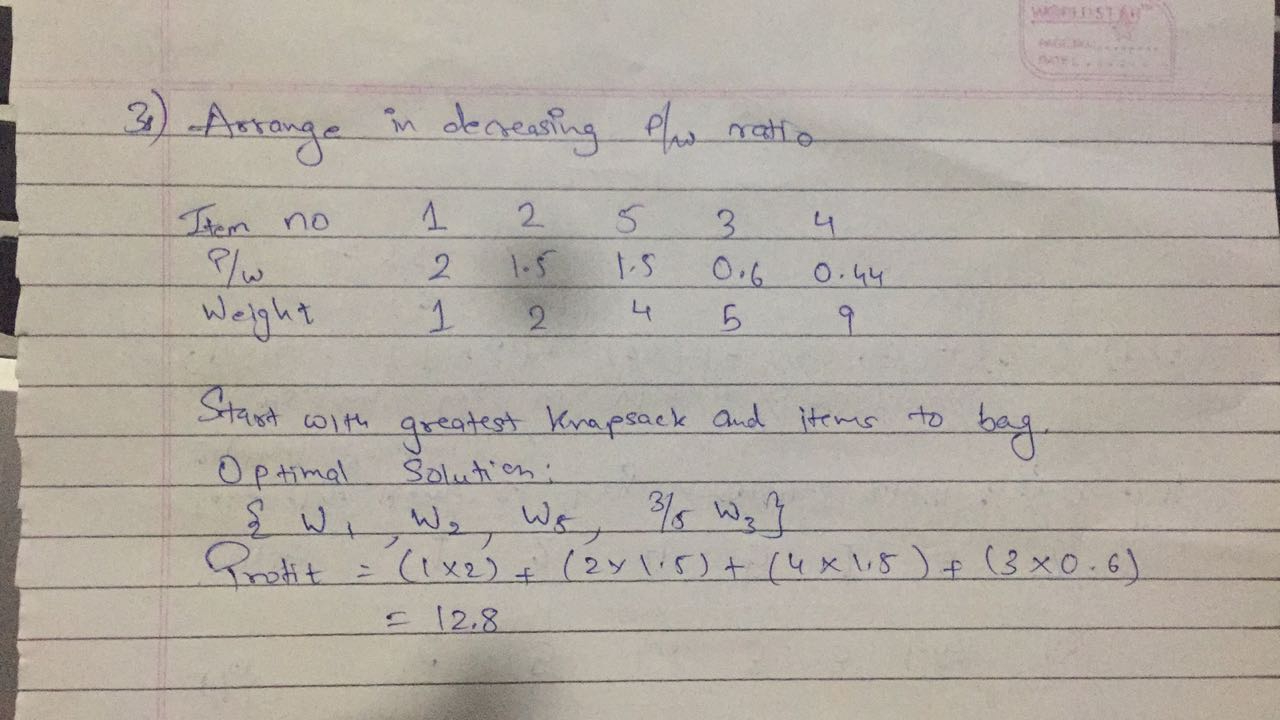 3) Arrange in decreasing P/w ratio
Item no 1 2 5 3 4
P/w 2 1.5 1.5 0.6 0.44
Weight 1 2 4 5 9
Start with greatest Knapsack and items to bag.
Optimal Solution:
{ W1, W2, W5, 3/5 W3}
Profit = (1×2) + (2×1.5) + (4×1.5) + (3×0.6)
= 12.8